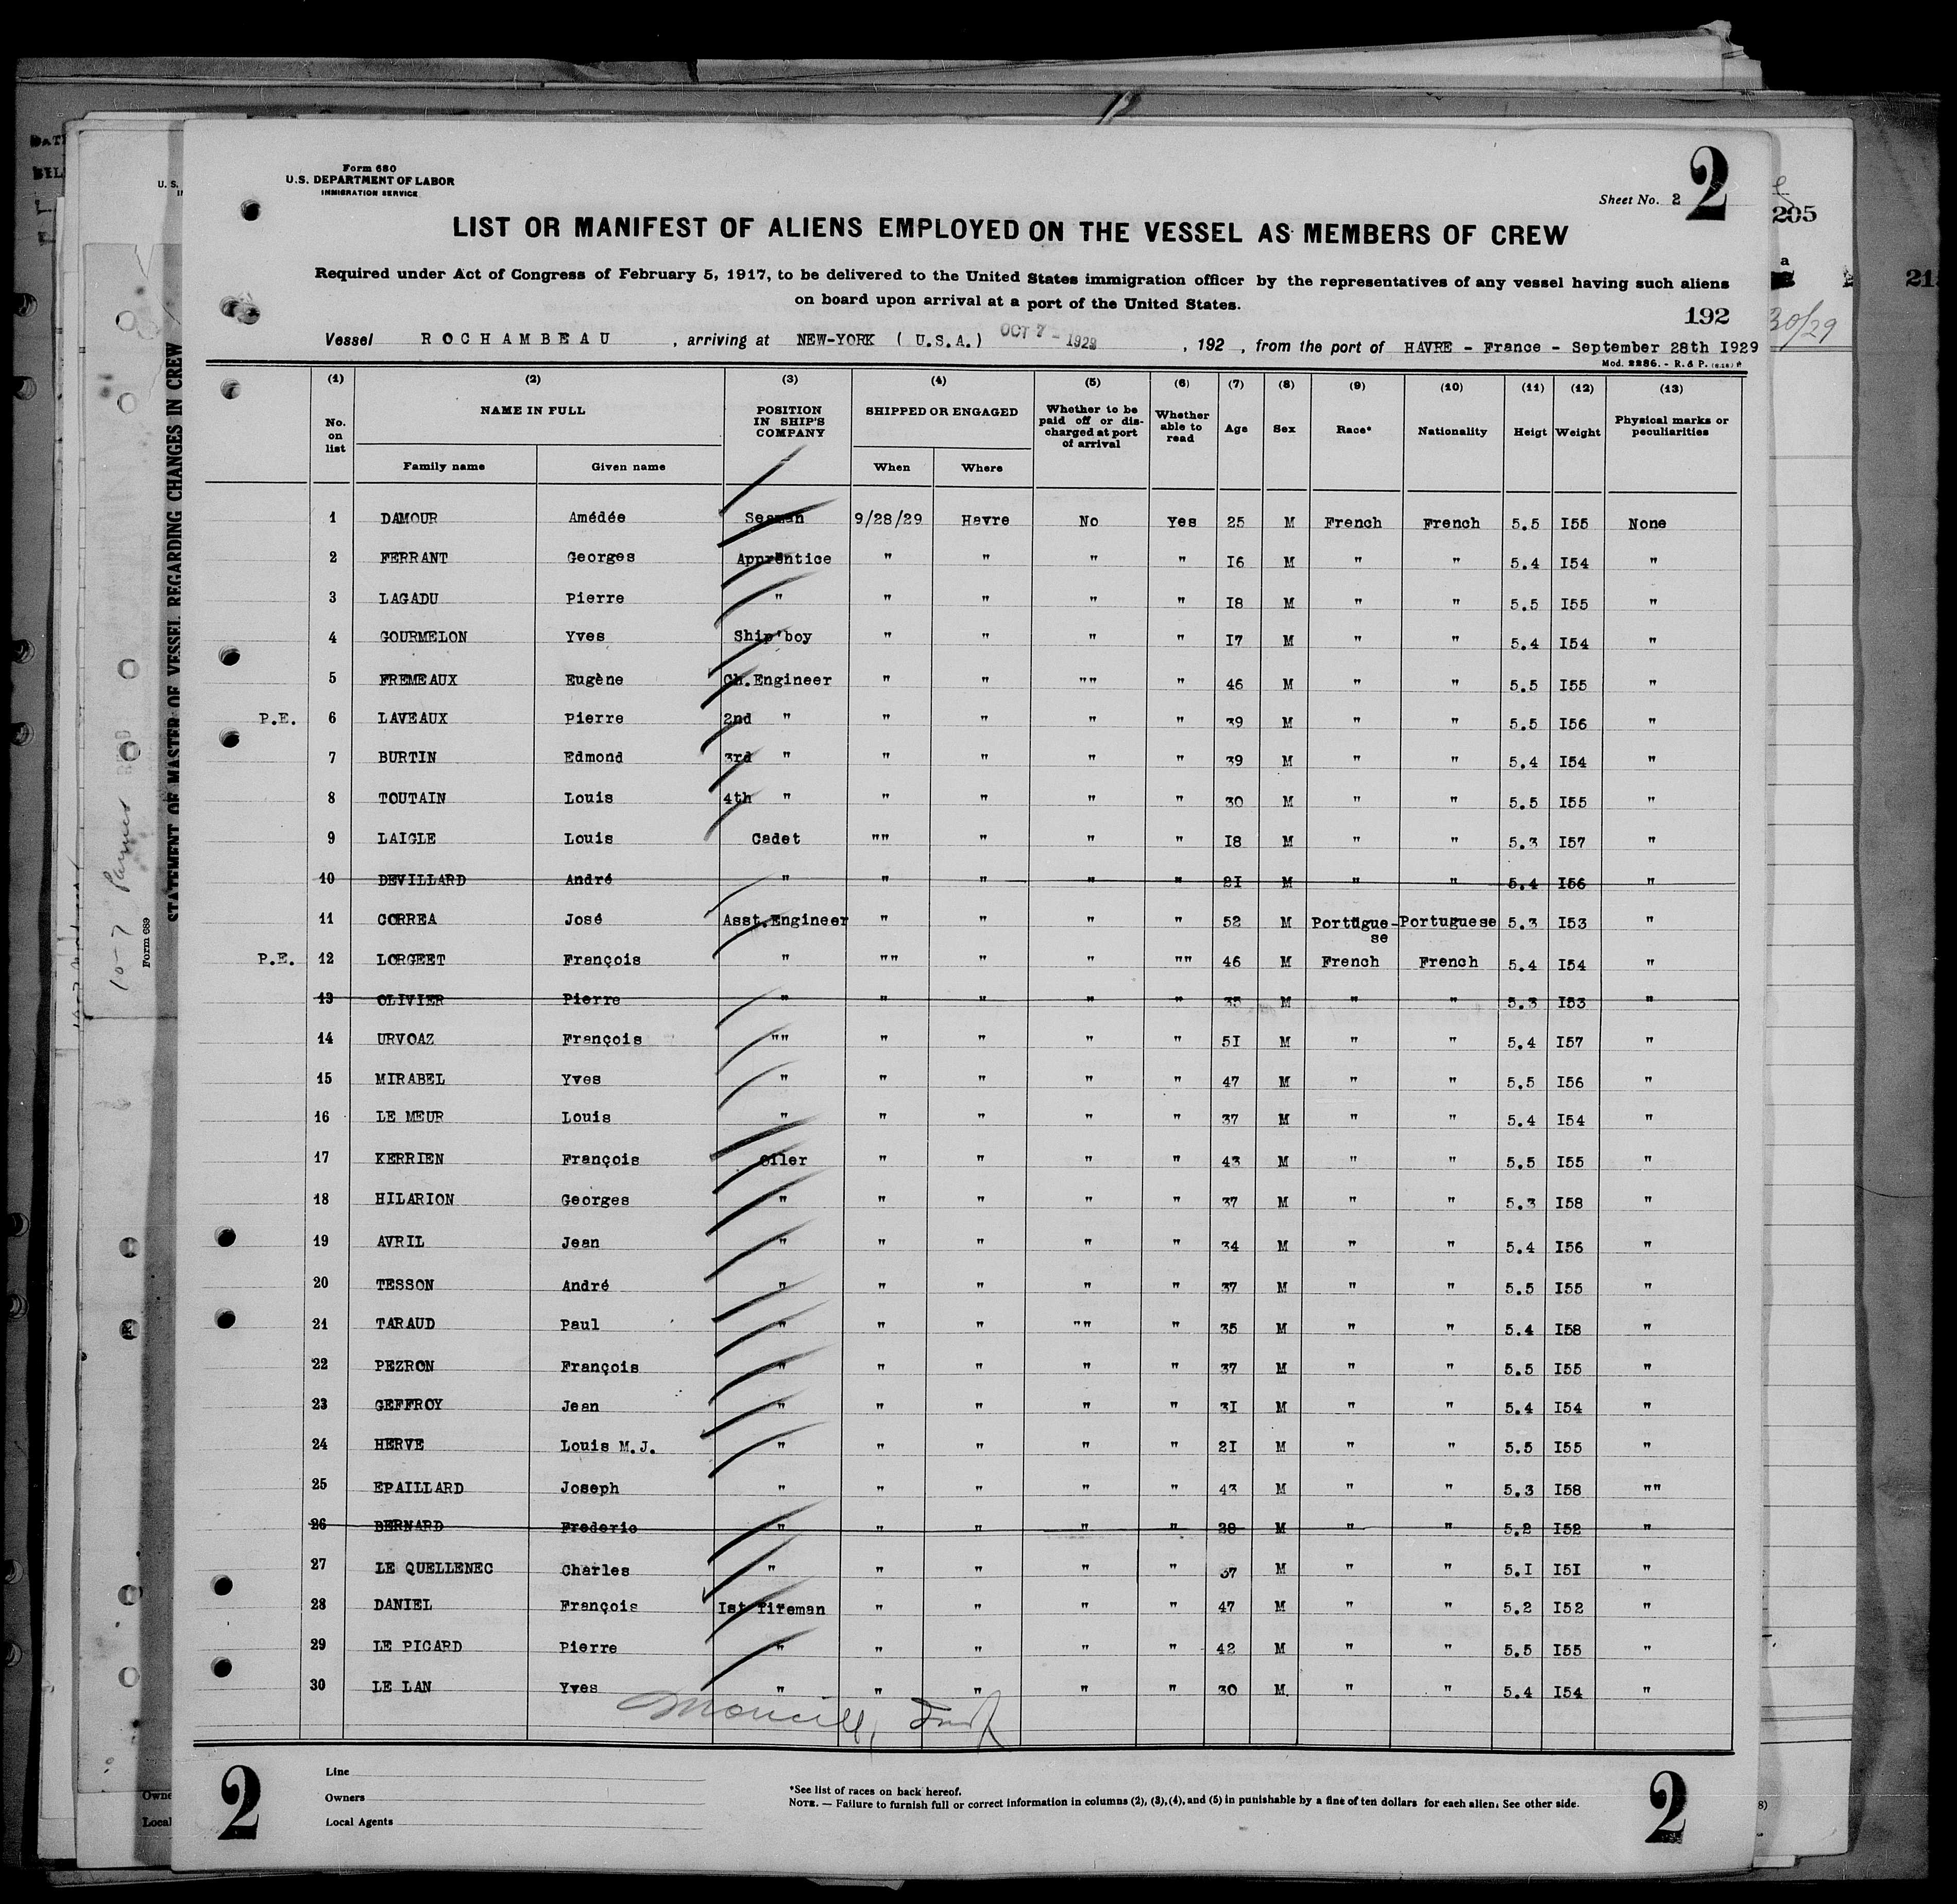 Form 680
U.S. DEPARTMENT OF LABOR
IMMIGRATION SERVICE
Sheet No. 2
2
LIST OR MANIFEST OF ALIENS EMPLOYED ON THE VESSEL AS MEMBERS OF CREW
Required under Act of Congress of February 5, 1917, to be delivered to the United States immigration officer by the representatives of any vessel having such aliens
on board upon arrival at a port of the United States.
192
Vessel ROCHAMBEAU , arriving at NEW-YORK ( U.S.A.) OCT 7 - 1929 , 192 , from the port of HAVRE - France - September 28th I929
Mod. 2286. - R. & P.
(1) (2) (3) (4) (5) (6) (7) (8) (9) (10) (11) (12) (13)
No. on list NAME IN FULL POSITION IN SHIP'S COMPANY SHIPPED OR ENGAGED Whether to be paid off or discharged at port of arrival Whether able to read Age Sex Race* Nationality Heigt Weight Physical marks or peculiarities
Family name Given name When Where
1 DAMOUR Amédée Seaman 9/28/29 Havre No Yes 25 M French French 5.5 I55 None
2 FERRANT Georges Apprentice " " " " I6 M " " 5.4 I54 "
3 LAGADU Pierre " " " " " I8 M " " 5.5 I55 "
4 GOURMELON Yves Ship'boy " " " " I7 M " " 5.4 I54 "
5 FREMEAUX Eugène Ch.Engineer " " "" " 46 M " " 5.5 I55 "
P.E. 6 LAVEAUX Pierre 2nd " " " " " 39 M " " 5.5 I56 "
7 BURTIN Edmond 3rd " " " " " 39 M " " 5.4 I54 "
8 TOUTAIN Louis 4th " " " " " 30 M " " 5.5 I55 "
9 LAIGLE Louis Cadet "" " " " I8 M " " 5.3 I57 "
10 DEVILLARD André " " " " " 2I M " " 5.4 I56 "
11 CORREA José Asst.Engineer " " " " 52 M Portugue-se Portuguese 5.3 I53 "
P.E. 12 LORGEET François " "" " " "" 46 M French French 5.4 I54 "
13 OLIVIER Pierre " " " " " 35 M " " 5.3 I53 "
14 URVOAZ François "" " " " " 5I M " " 5.4 I57 "
15 MIRABEL Yves " " " " " 47 M " " 5.5 I56 "
16 LE MEUR Louis " " " " " 37 M " " 5.4 I54 "
17 KERRIEN François Oiler " " " " 43 M " " 5.5 I55 "
18 HILARION Georges " " " " " 37 M " " 5.3 I58 "
19 AVRIL Jean " " " " " 34 M " " 5.4 I56 "
20 TESSON André " " " " " 37 M " " 5.5 I55 "
21 TARAUD Paul " " " "" " 35 M " " 5.4 I58 "
22 PEZRON François " " " " " 37 M " " 5.5 I55 "
23 GEFFROY Jean " " " " " 3I M " " 5.4 I54 "
24 HERVE Louis M.J. " " " " " 2I M " " 5.5 I55 "
25 EPAILLARD Joseph " " " " " 43 M " " 5.3 I58 ""
26 BERNARD Frederic " " " " " 28 M " " 5.2 I52 "
27 LE QUELLENEC Charles " " " " " 37 M " " 5.I I5I "
28 DANIEL François Ist fireman " " " " 47 M " " 5.2 I52 "
29 LE PICARD Pierre " " " " " 42 M " " 5.5 I55 "
30 LE LAN Yves " " " " " 30 M. " " 5.4 I54 "
2
Line
Owners
Local Agents
*See list of races on back hereof.
NOTE. — Failure to furnish full or correct information in columns (2), (3), (4), and (5) in punishable by a fine of ten dollars for each alien. See other side.
2
STATEMENT OF MASTER OF VESSEL REGARDING CHANGES IN CREW
Form 689
U. S.
205
30/29
Owne
Local